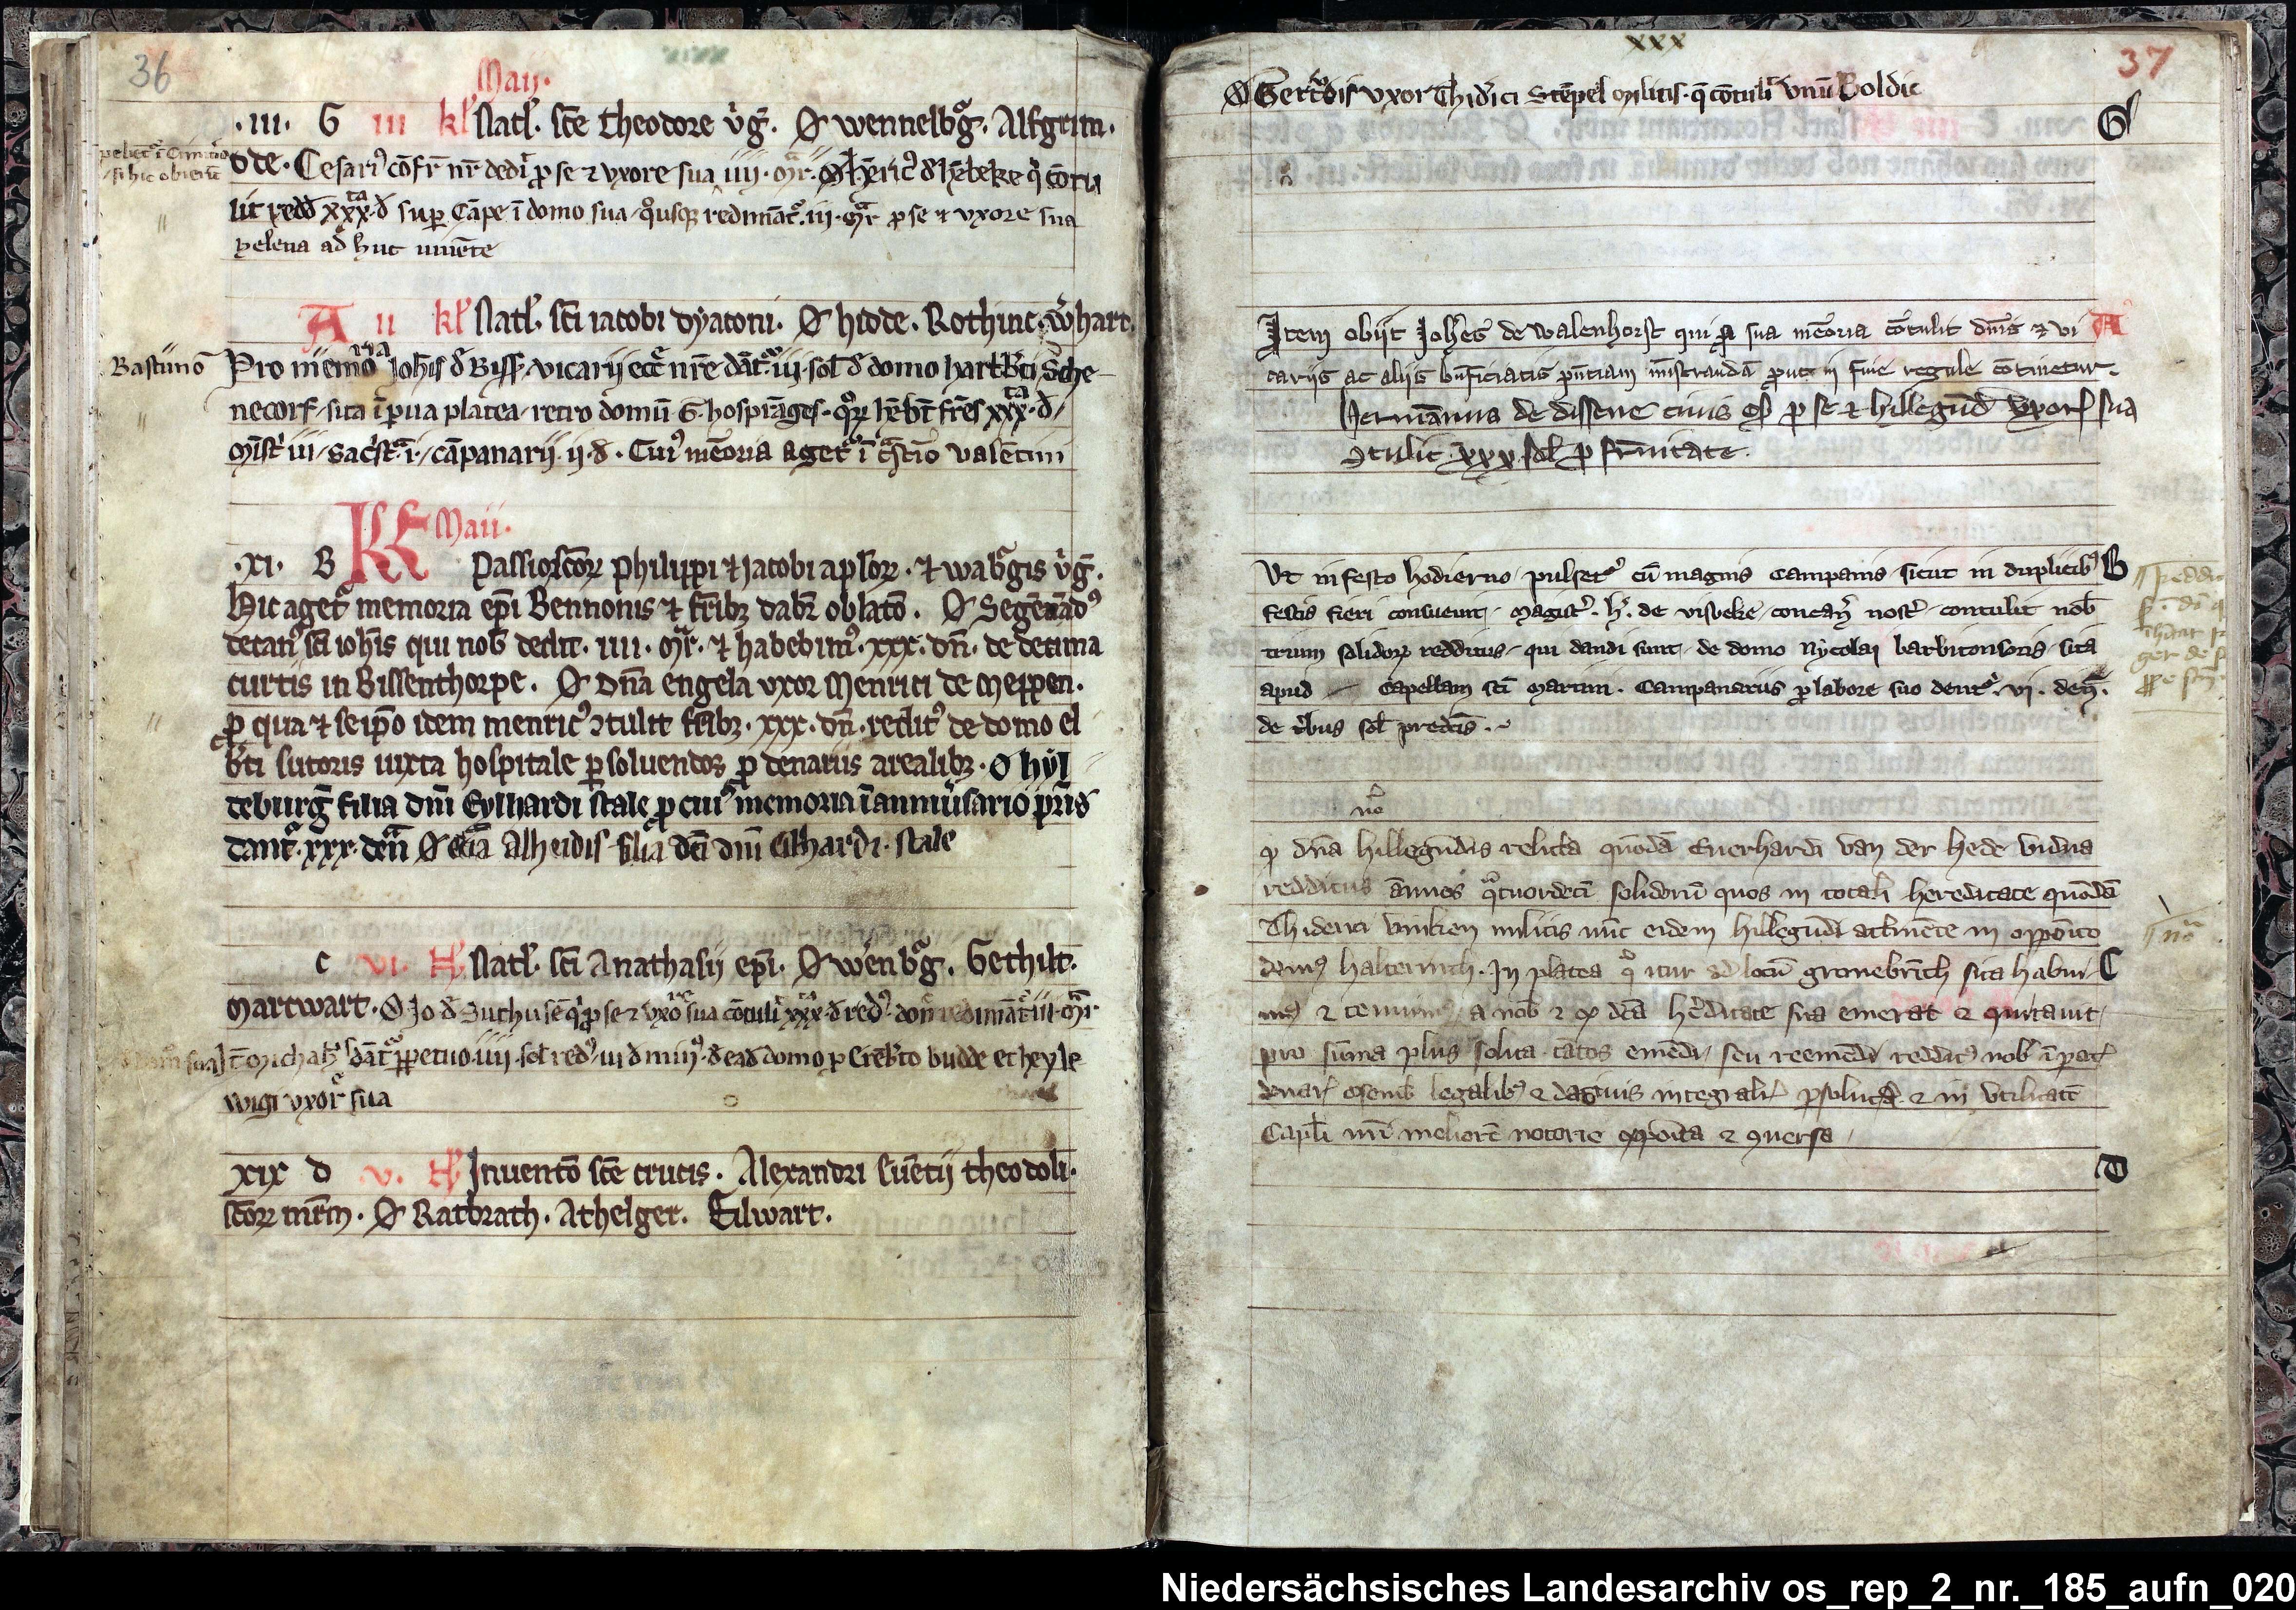 36
xxix
Maii.
.iii. G iii kl' Natl'. scē theodore v'g̃. O wennelb'g̃. Alfgrim.
ode. Cesari' cōfr̄ nr̄ dedi't p se ⁊ vxore sua iiii. mr̄. O Hēric' d' hēbeke q' cōtu
lit redd' xxx d' sup Cāpe ī domo sua quousq; redimāt' iii. mr̄ p se ⁊ vxore sua
helena ad huc viuēte
A ii kl' Natl'. sc̄i iacobi dyaconi. O hidde. Rothinc. w'hart.
Bastūnō
Pro memoria Joh̄is d' Biss. vicarii ecc̄e nr̄e dāt' iii. sol' d' domo hartb'ti Sche
necorf, sita ī parua platea, retro domū G. hosp̄rāges. quor; hēbt fr̄es xxx. d'
mīst' iii, sac'st' i, cāpanarii ii. d'. Cui' mēoria aget' ī c̄stīo valētini
KL Maii.
.xi. B Passio sc̄or; Philippi ⁊ Jacobi ap̄lor;. ⁊ walb'gis v'g̃.
Hic aget' memoria ep̄i Bennonis ⁊ fr̄ib; dab' oblatō. O Segēnād'
decan' sc̄i ioh̄is qui nob' dedit. iiii. mr̄. ⁊ habebim'. xxx. dn̄. de decima
curtis in Bissenthorpe. O Dn̄a engela vxor Menrici de Meppen.
p qua ⁊ se ip̄o idem menric' ꝯtulit fr̄ib;. xxx. dn̄. redit' de domo el
b'ti sutoris iuxta hospitale psoluendos p denariis arealib;. O hyl
deburg̃ filia dn̄i Eylhardi stale p cui' memoria ī anniu'sario pr̄is
dant'. xxx. den̄ O eciā Alheidis filia dc̄i dn̄i Eilhardi. stale
c vi. N' Natl'. sc̄i Anathasii ep̄i. O wenb'g̃. Gethilt.
Martwart. O Jo d' Suthusē q' p se ⁊ vxore sua cōtulit xxx. d' red' don' redimāt' iii. mr̄.
dāt' ppetuo iiii sol' red' iii d' min' d' ead' domo p Lēb'to budde et heyle
wigi vxor' sua
xix d v. N' Inuentō scē crucis. Alexandri Euētii theodoli.
sc̄or; mr̄m. O Ratbrath. Athelger. Eilwart.
xxx
37
O Gert'dis vxor Thid'ici Stēpel militis. q̄ cōtulit vnū Boldic
G
Item obiit Joh'es de walenhorst qui p sua mēoria cōtulit dn̄is ⁊ vi A
cariis ac aliis bn̄ficiatis pn̄tiam mīstrandā put in fine regule cōtinetur.
Hermānus de dissene ciuis os' p se ⁊ hillegūd' vxor' sua
ꝯtulit xxx sol' p fr̄nitate.
Vt in festo hodierno, pulset' cū magnis campanis sicut in duplicib' B
festis fieri consueuit, magist'. h'. de visbeke, concan' nost' contulit nob'
trium solidor; redditus, qui dandi sunt, de domo Nycolai barbitonsoris, sita
apud capellam sc̄i martini. Campanariis p labore suo dent' vi. den̄.
de t'bus sol' predc̄is.
no
dn̄a hillegūdis relicta quōdā Euerhardi van der hede vidua
redditus ānuos q'tuordeci solidorū quos in totali hereditate quōdā
Thiderici vinken militis nūc eidem hillegūdi attinēte in opposito
dom' halterinch. In platea q' itur ad locū gronebrich sita habui C
m' ⁊ tenuim', a nob' ⁊ ex dc̄a h'editate sua emerat ⁊ quitauit,
pro sūma plus solita tātos emēdi, seu reemēdi reddit' nob' ī pat'
denar' osenb' legalib' ⁊ datiuis integralit' psoluta ⁊ in vtilitatē
Capl'i nr̄i meliorē notorie exposita ⁊ ꝯuersa,
nō
D
Niedersächsisches Landesarchiv os_rep_2_nr._185_aufn_020